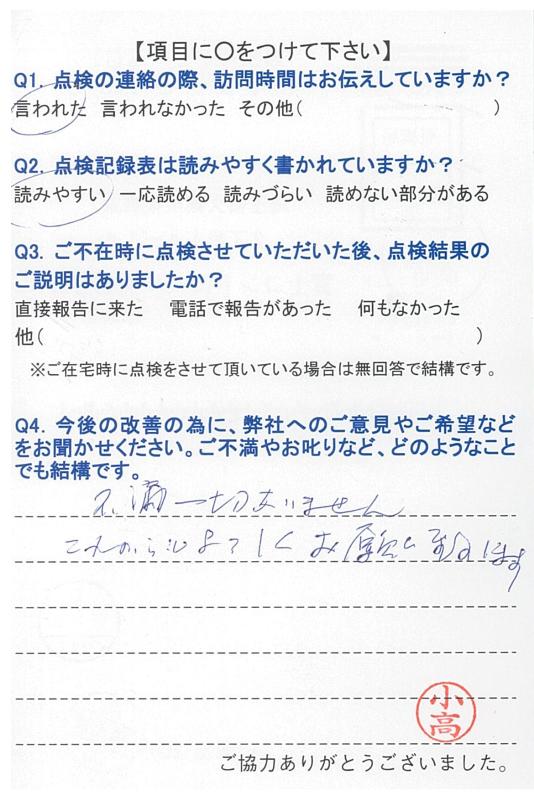 【項目に〇をつけて下さい】
Q1. 点検の連絡の際、訪問時間はお伝えしていますか?
言われた 言われなかった その他( )
Q2. 点検記録表は読みやすく書かれていますか?
読みやすい 一応読める 読みづらい 読めない部分がある
Q3. ご不在時に点検させていただいた後、点検結果の
ご説明はありましたか?
直接報告に来た 電話で報告があった 何もなかった
他( )
※ご在宅時に点検をさせて頂いている場合は無回答で結構です。
Q4. 今後の改善の為に、弊社へのご意見やご希望など
をお聞かせください。ご不満やお叱りなど、どのようなこと
でも結構です。
不満一切ありません
これからもよろしくお願い致します
小高
ご協力ありがとうございました。